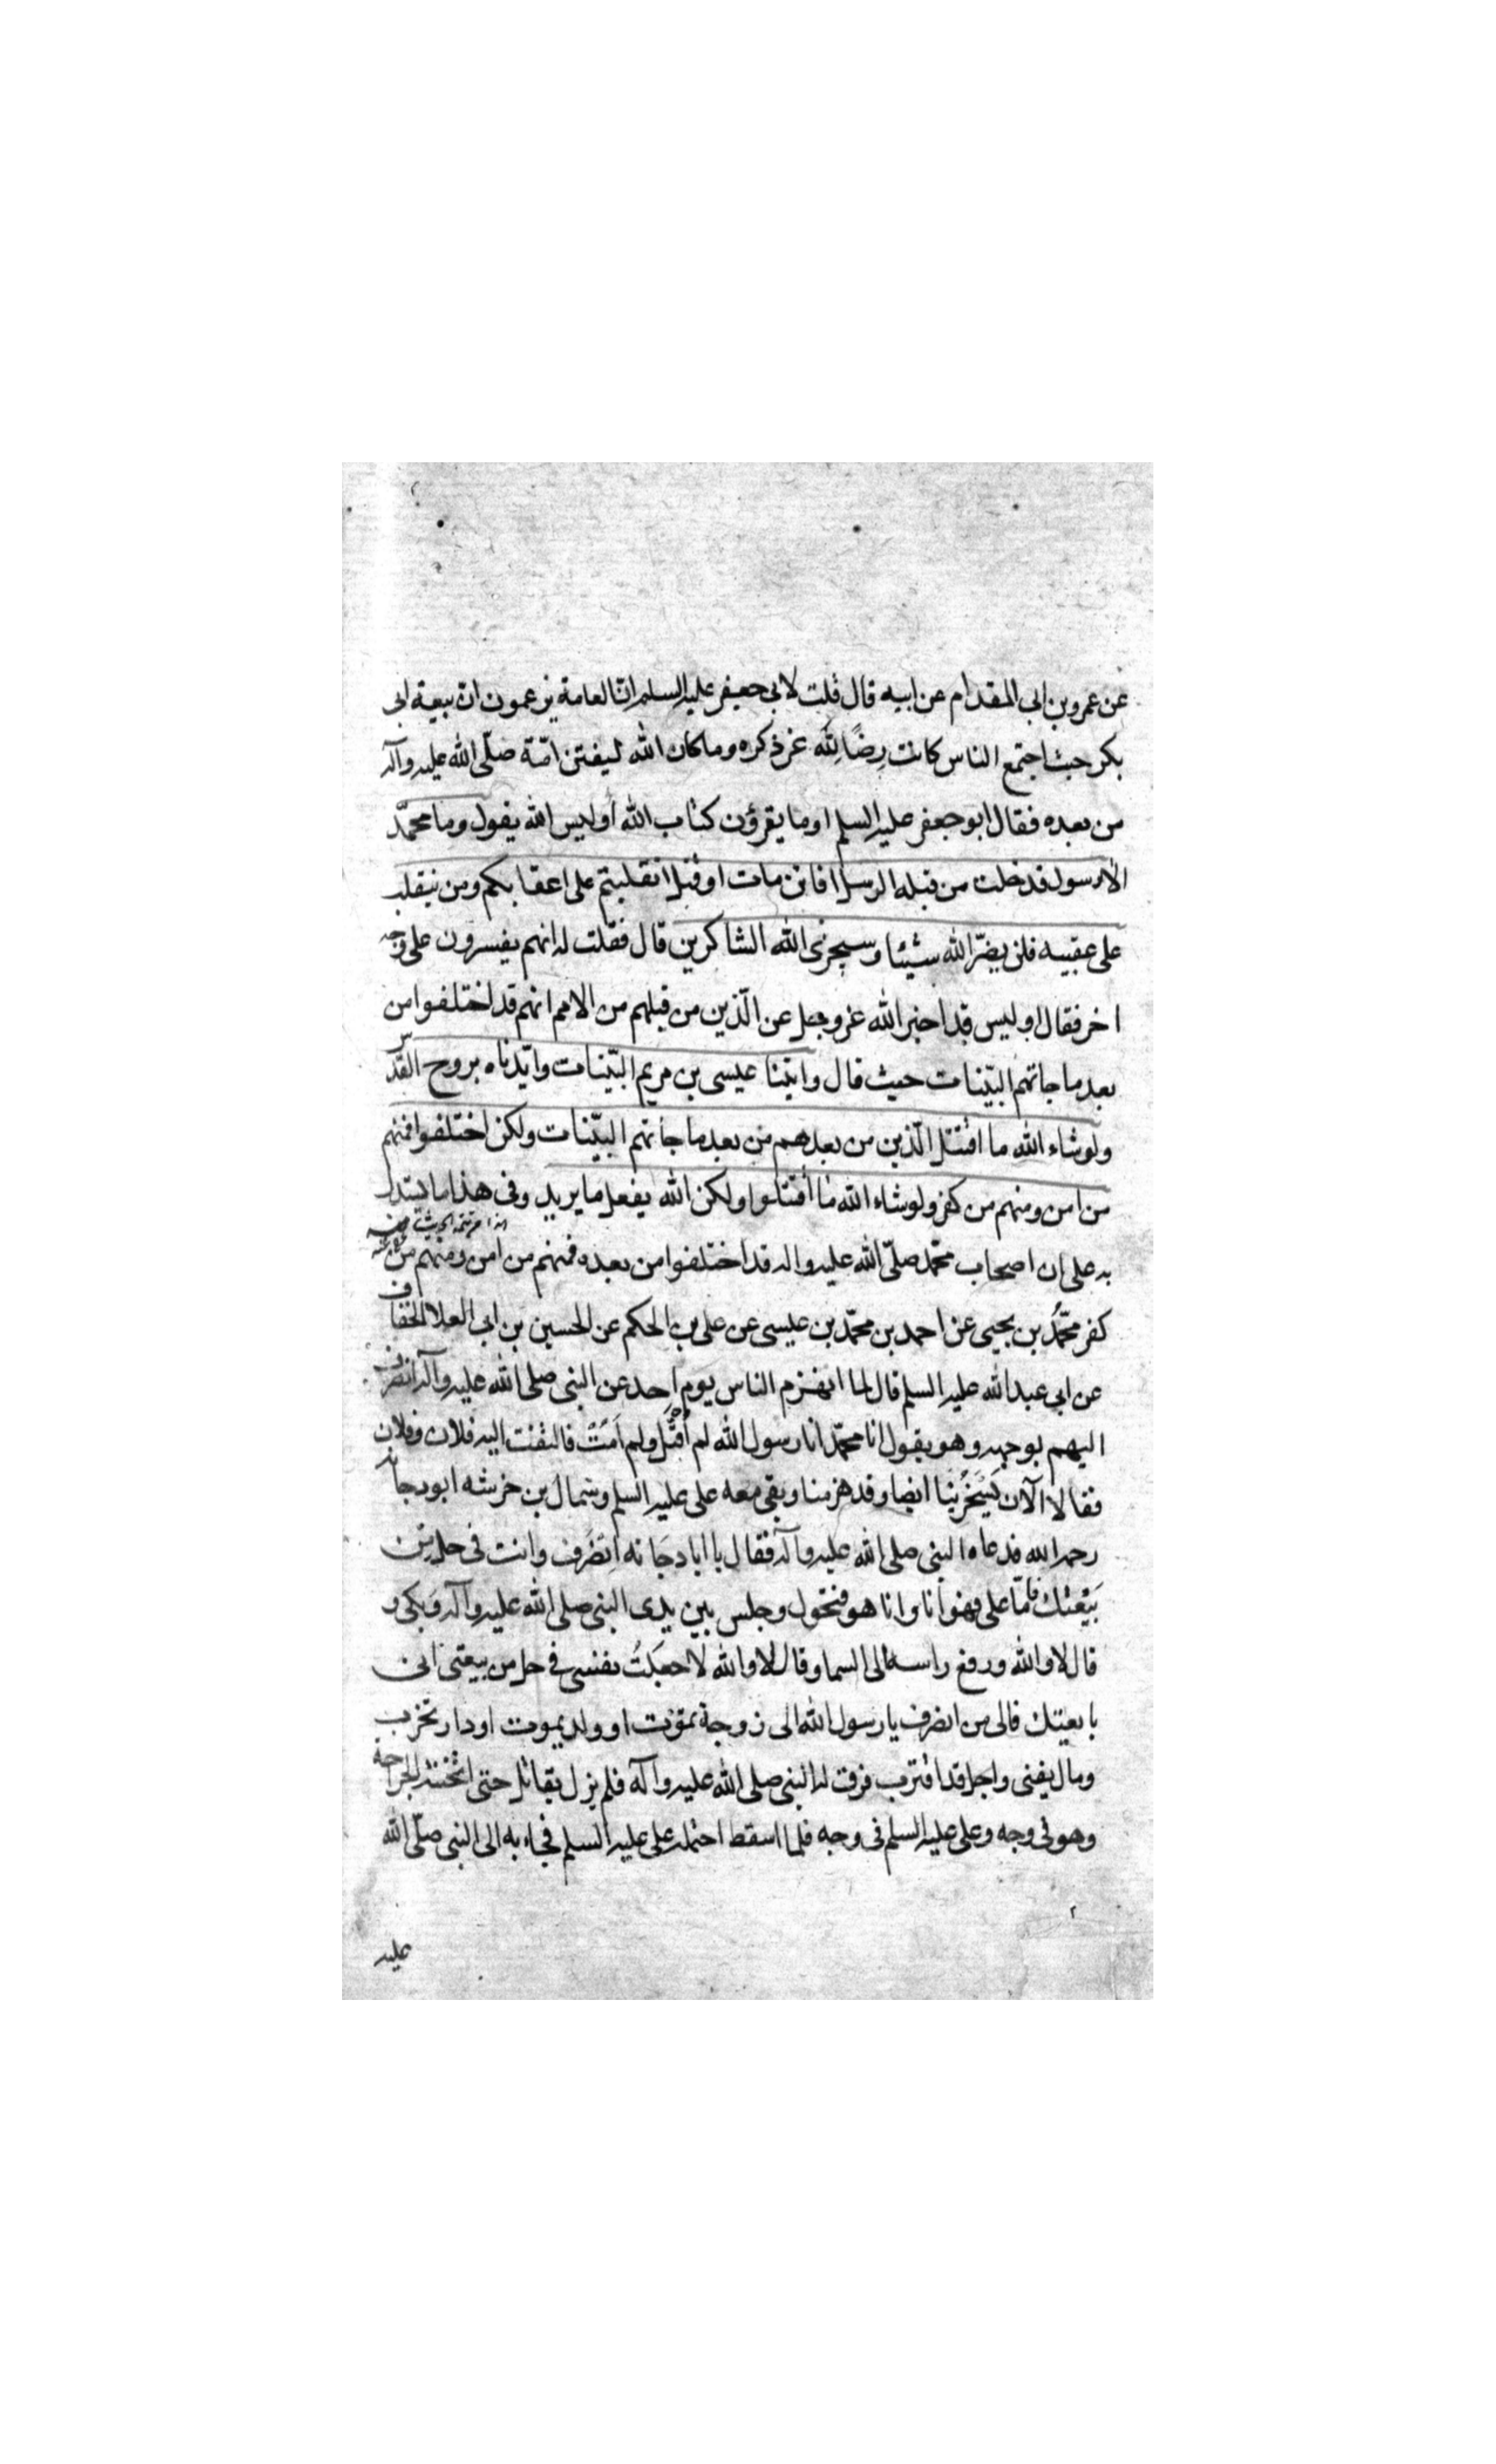 عن عمرو بن ابى المقدام عن ابيه قال قلت لابى جعفر عليه السلم ان العامة يزعمون ان بيعة ابى
بكر حيث اجتمع الناس كانت رِضًا لِلّه عز ذكره وما كان الله ليفتن امّة صلّى الله عليه وآله
من بعده فقال ابو جعفر عليه السلم اوما يقرؤن كتاب الله أو ليس الله يقول وما محمّد
الا رسول قد خلت من قبله الرسل افائن مات او قتل انقلبتم على اعقابكم ومن ينقلب
على عقبيه فلن يضرّ الله شيئا وسيجزى الله الشاكرين قال فقلت له انهم يفسرون على وجه
اخر فقال او ليس قد اخبر الله عز وجل عن الّذين من قبلهم من الامم انهم قد اختلفوا من
بعد ما جائتهم البيّنات حيث قال واتينا عيسى بن مريم البيّنات وايّدناه بروح القدس
ولو شاء الله ما اقتتل الّذين من بعدهم من بعد ما جائتهم البيّنات ولكن اختلفوا فمنهم
من امن ومنهم من كفر ولو شاء الله ما اقتتلوا ولكن الله يفعل ما يريد وفى هذا ما يستدل
به على ان اصحاب محمّد صلّى الله عليه واله قد اختلفوا من بعده فمنهم من امن ومنهم من
كفر محمّدُ بن يحيى عن احمد بن محمّد بن عيسى عن على بن الحكم عن الحسين بن ابى العلا الخفاف
عن ابى عبد الله عليه السلم قال لما انهزم الناس يوم احد عن النبى صلى الله عليه وآله انصرف
اليهم بوجهه وهو يقول انا محمّد انا رسول الله لم أُقتَل ولم اَمُتْ فالتفت اليه فلان وفلان
فقالا الآن يَسْخَرُ بنا ايضا وقد هزمنا وبقى معه على عليه السلم وسماك بن خرشه ابو دجانه
رحمه الله فدعاه النبى صلى الله عليه وآله فقال يا ابا دجَانه اِنصَرِف وانت فى حل من
بَيْعَتك فامّا على فهو أنا وانا هو فتحول وجلس بين يدى النبى صلى الله عليه وآله وبَكى و
قال لا والله ورفع راسه الى السما وقال لا والله لا جعَلتُ نفسى فى حل من بيعتى انى
بايعتك فالى من انصرف يا رسول الله الى زوجة تموْت او ولد يموت او دار تخرب
ومال يفنى واجل قد اقترب فرق له النبى صلى الله عليه وآله فلم يزل يقاتل حتى اثخنته الجراحة
وهو فى وجه وعلى عليه السلم فى وجه فلما اسقط احتمله على عليه السلم فجاء به الى النبى صلّى الله
٢
عليه